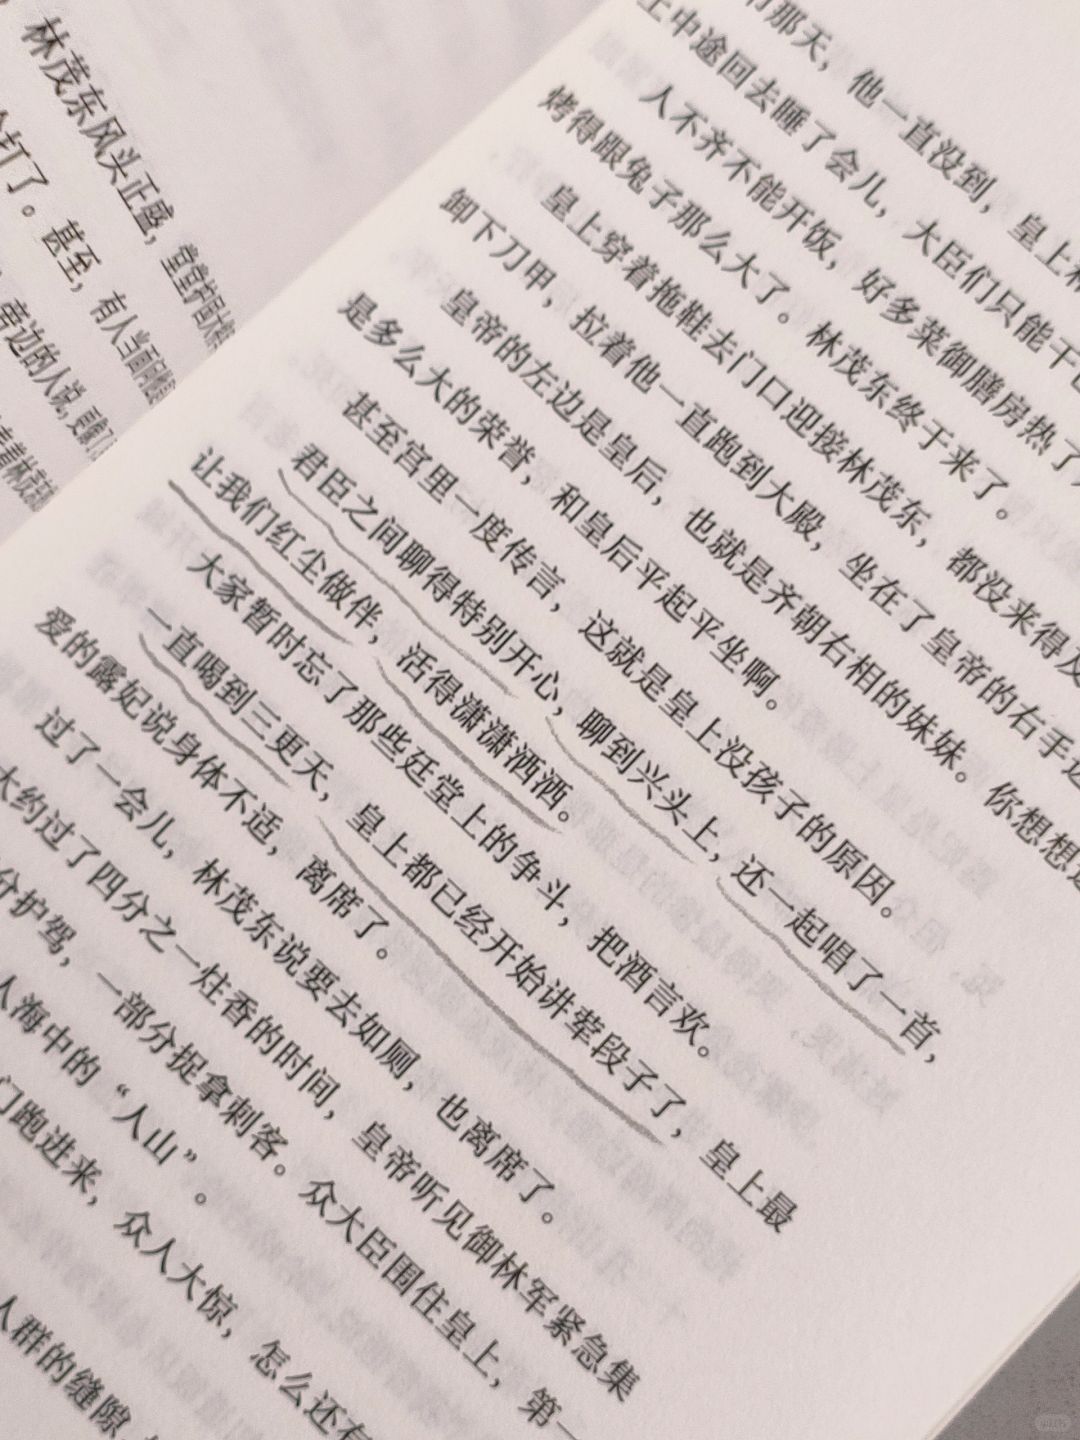 林茂东风头正盛，堂堂护国大
打了。甚至，有人当面
旁边的人说，
那天，他一直没到，皇上
上中途回去睡了会儿，大臣们只能干
人不齐不能开饭，好多菜御膳房热了
烤得跟兔子那么大了。林茂东终于来了。
皇上穿着拖鞋去门口迎接林茂东，都没来得及
卸下刀甲，拉着他一直跑到大殿，坐在了皇帝的右手边
皇帝的左边是皇后，也就是齐朝右相的妹妹。你想想这
是多么大的荣誉，和皇后平起平坐啊。
甚至宫里一度传言，这就是皇上没孩子的原因。
君臣之间聊得特别开心，聊到兴头上，还一起唱了一首，
让我们红尘做伴，活得潇潇洒洒。
大家暂时忘了那些廷堂上的争斗，把酒言欢。
一直喝到三更天，皇上都已经开始讲荤段子了，皇上最
爱的露妃说身体不适，离席了。
过了一会儿，林茂东说要去如厕，也离席了。
大约过了四分之一炷香的时间，皇帝听见御林军紧急集
分护驾，一部分捉拿刺客。众大臣围住皇上，第一
人海中的“人山”。
门跑进来，众人大惊，怎么还有
人群的缝隙，